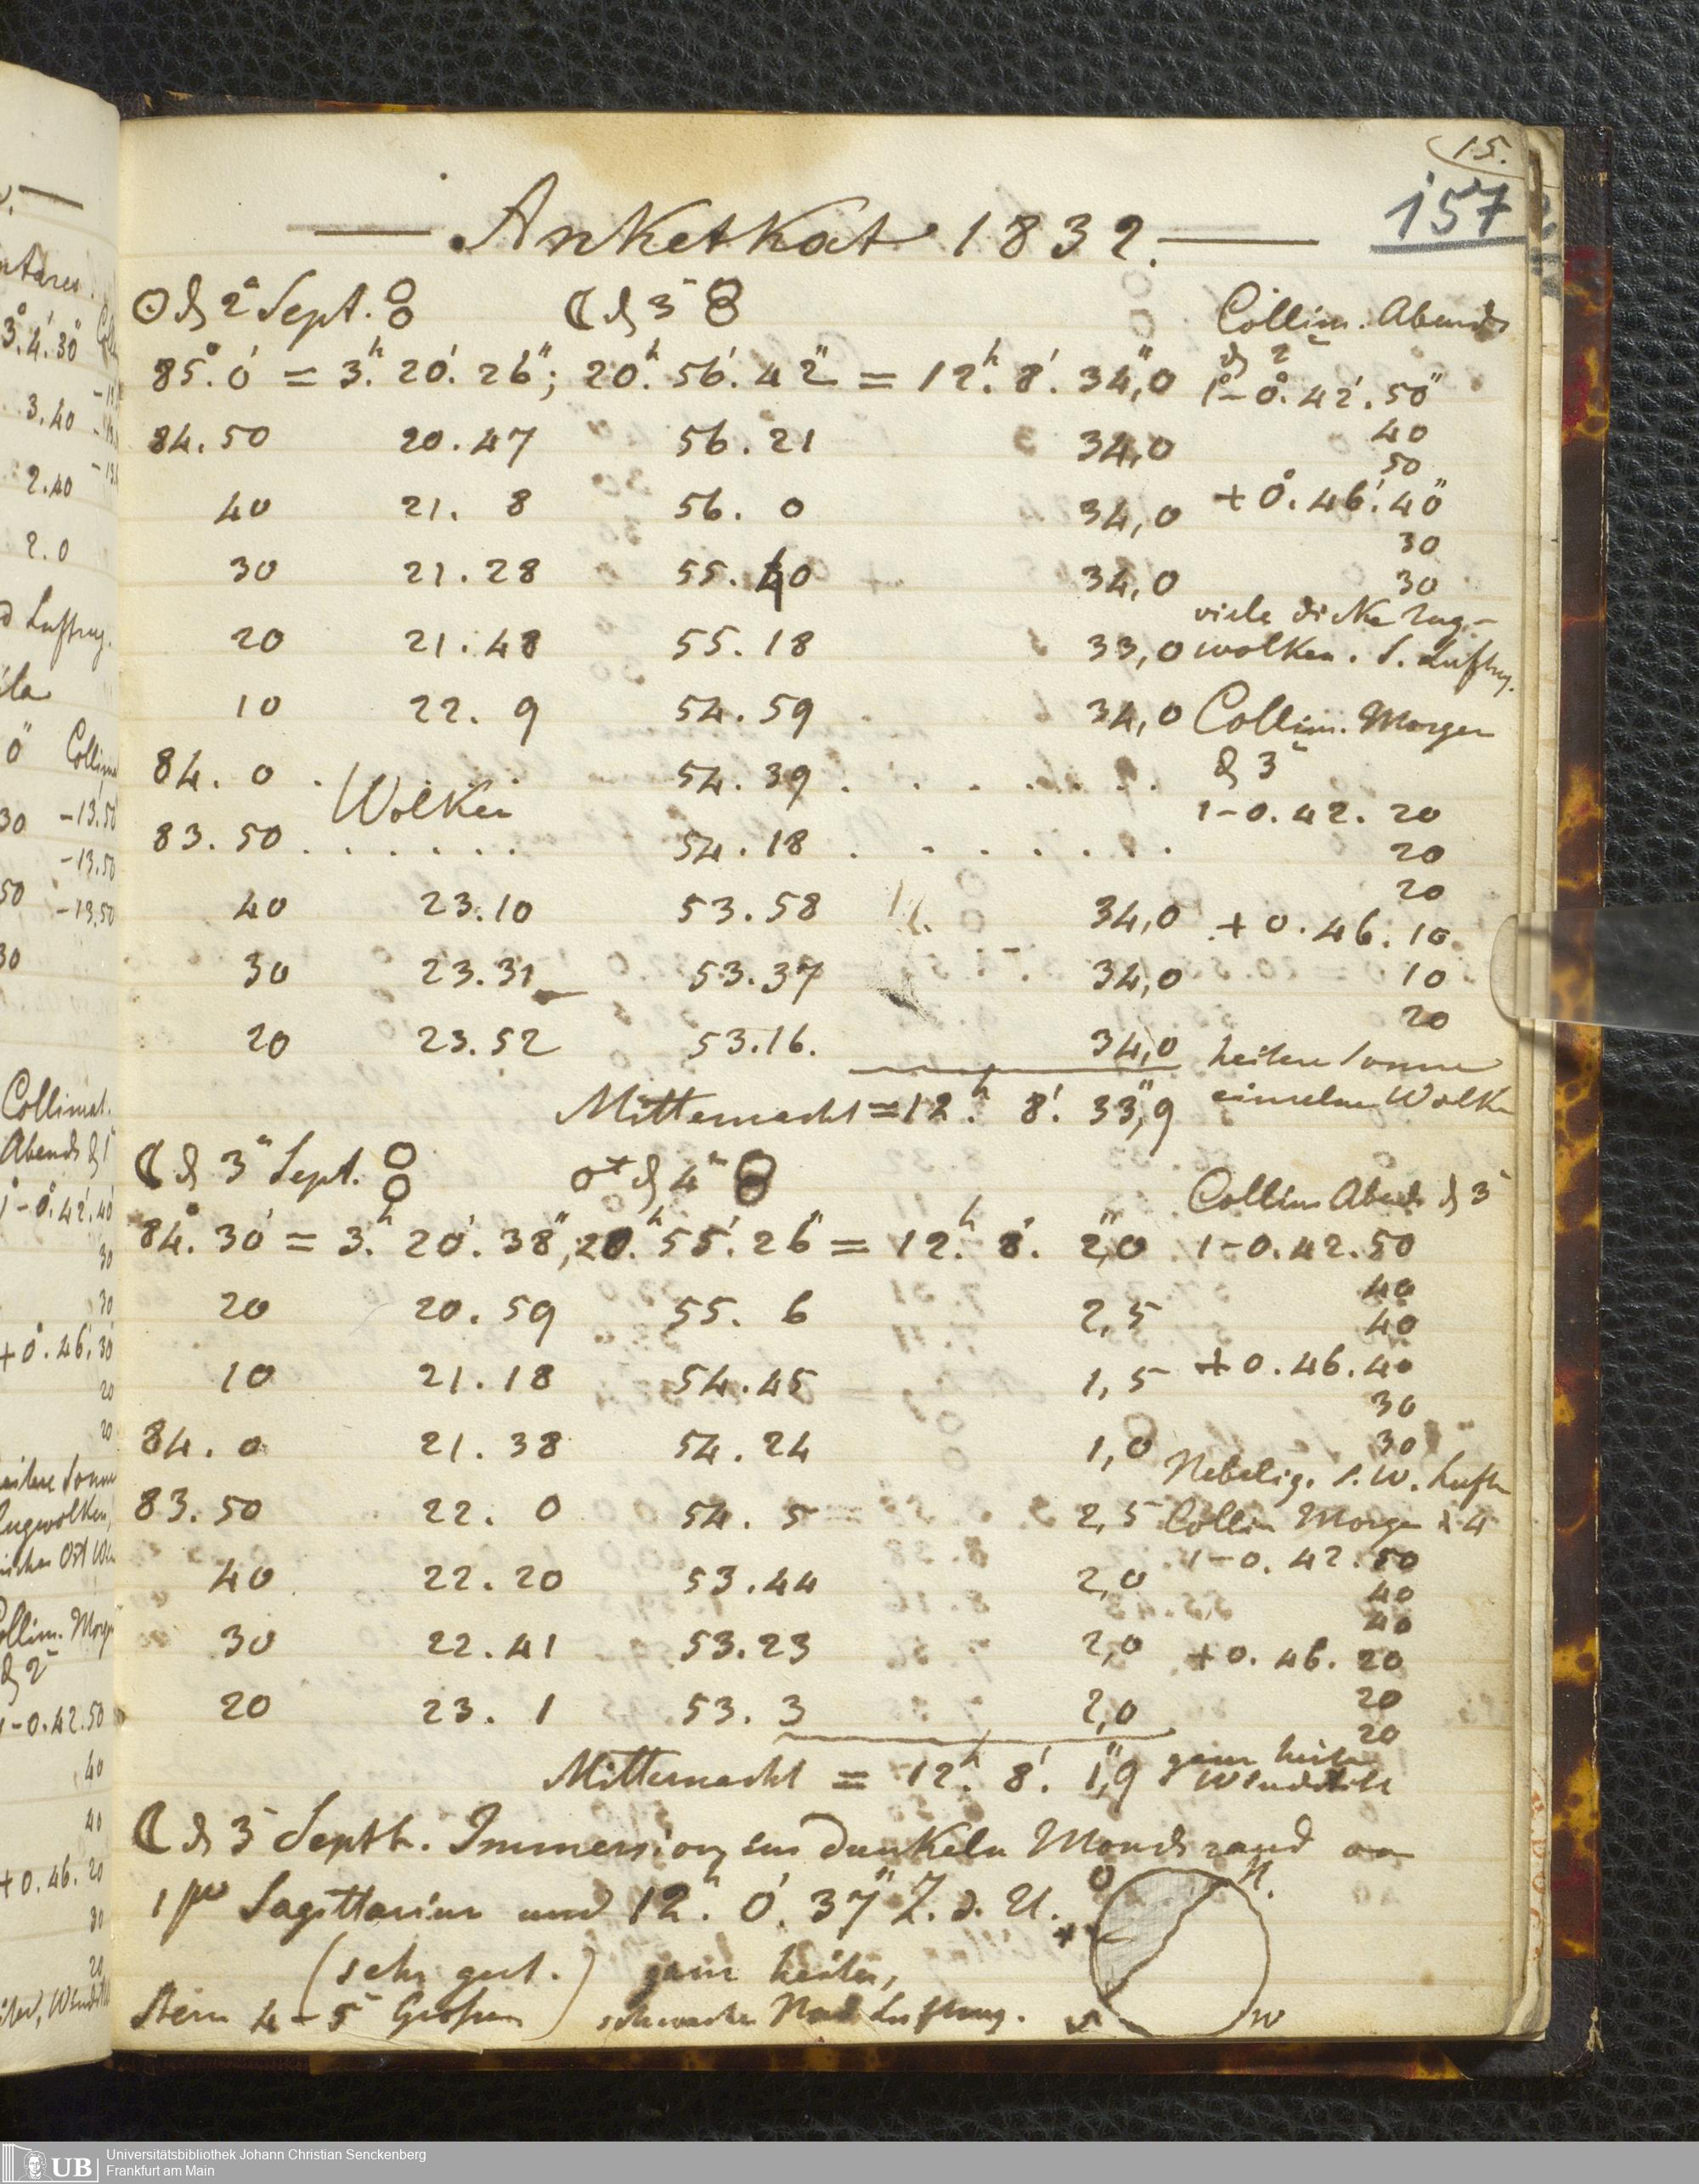 15.
157
— Anketkat 1832. —
☉ d 2ⁿ Sept. 8 ☾ d 3ⁿ 8 Collim. Abends
85°. 0' = 3ʰ. 20'. 26"; 20ʰ. 56'. 42" = 12ʰ. 8'. 34",0
d 2ⁿ
1°-0°. 42'. 50"
84. 50 20. 47 56. 21 34,0 40
50
40 21. 8 56. 0 34,0 + 0°. 46'. 40"
30
30 21. 28 55. 40 34,0 30
viele dicke Zug-
20 21. 48 55. 18 33,0 wolken. S. Luftzg.
10 22. 9 54. 59 34,0 Collim. Morgen
84. 0 . Wolken 54. 39 . . . . . . . d 3ⁿ
1-0. 42. 20
83. 50 . . . . . . 54. 18 . . . . . . . 20
20
40 23. 10 53. 58 34,0 + 0. 46. 10
30 23. 31 53. 37 34,0 10
20
20 23. 52 53. 16. 34,0 heitere Sonne
Mitternacht = 12ʰ. 8'. 33",9 einzelne Wolken
☾ d 3ⁿ Sept. 8 ♂ d 4ⁿ 8 Collim Abends d 3ⁿ
84°. 30' = 3ʰ. 20'. 38", 20ʰ. 55'. 26" = 12ʰ. 8'. 2",0 1-0. 42. 50
40
20 20. 59 55. 6 2,5 40
10 21. 18 54. 45 1,5 + 0. 46. 40
30
84. 0 21. 38 54. 24 1,0 30
Nebelig. S. W. Luftz
83. 50 22. 0 54. 5 2,5 Collim Morgen d 4
1-0. 42. 50
40 22. 20 53. 44 2,0 40
40
30 22. 41 53. 23 2,0 + 0. 46. 20
20 23. 1 53. 3 2,0 20
20
Mitternacht = 12ʰ. 8'. 1",9 ganz heiter
Windstill
☾ d 3ⁿ Septb. Immersion am dunkeln Mondsrand von
1 μ Sagittarius um 12ʰ. 0'. 37" Z. d. U. O N.
(sehr gut.) ganz heiter,
Stern 4-5ⁿ Grösse schwacher Nord Luftzug. S W
Universitätsbibliothek Johann Christian Senckenberg
Frankfurt am Main
UB